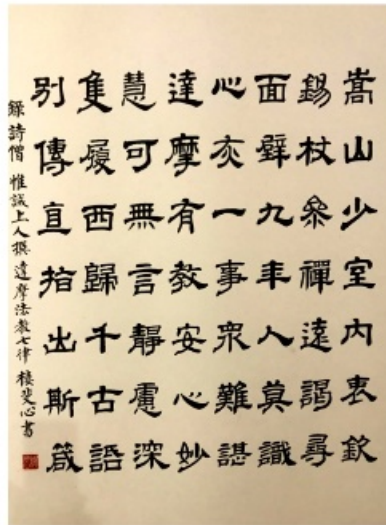 嵩山少室內衷欽
錫杖參禪遠謁尋
面壁九年人莫識
心灰一事眾難諶
達摩有教安心妙
慧可無言靜慮深
隻履西歸千古話
別傳直指出斯箴
錄詩僧惟誠上人撰達摩法教七律 樓斐心書